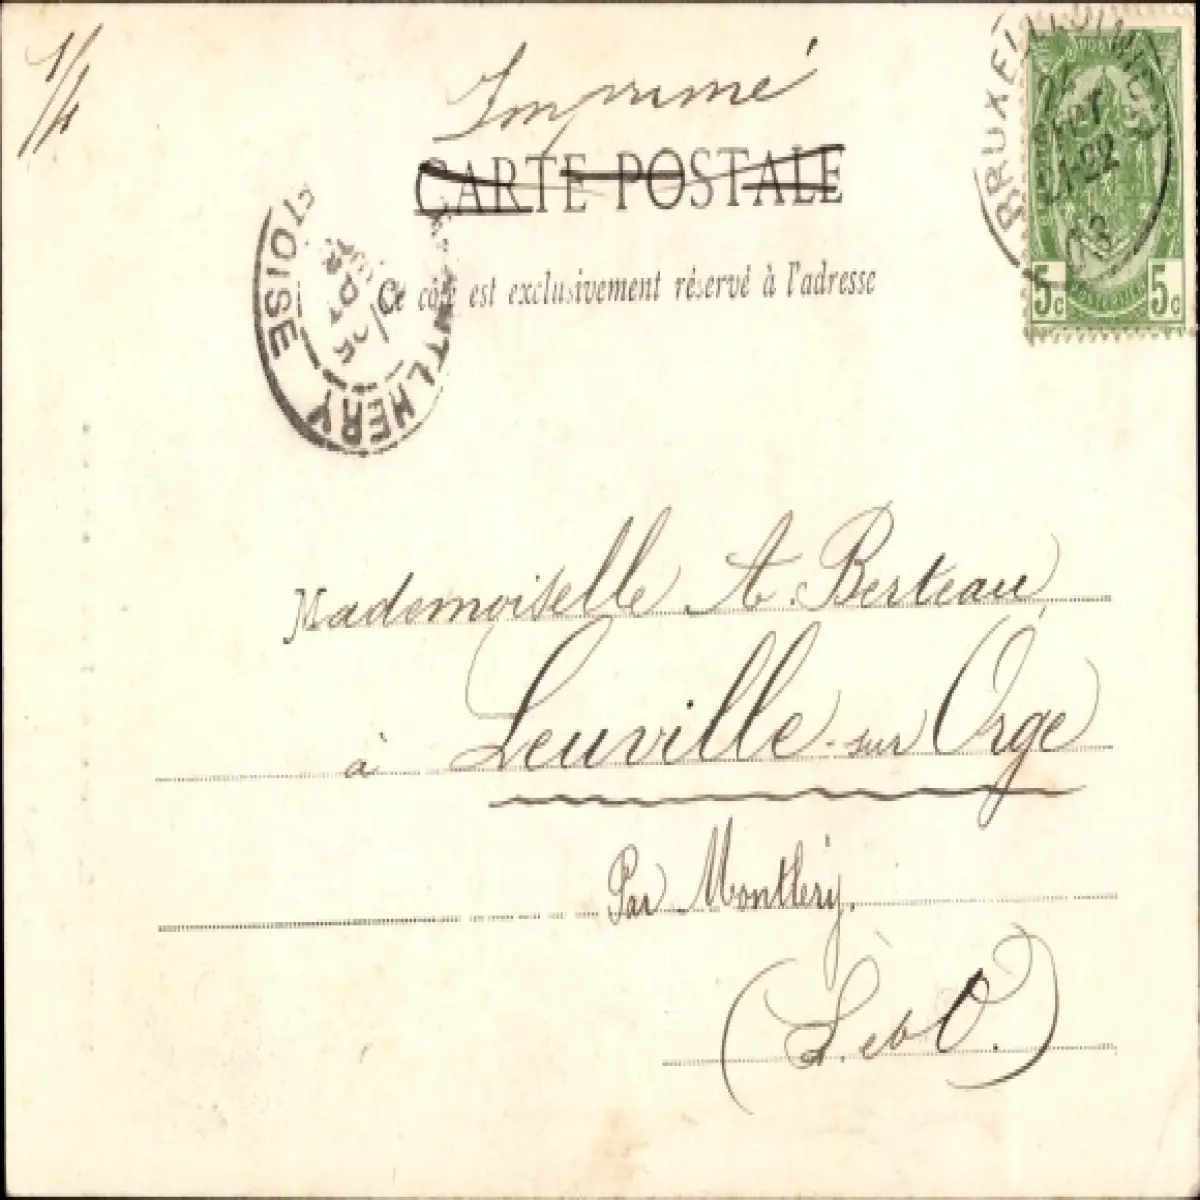 1/4
Imprimé
CARTE POSTALE
Ce côté est exclusivement réservé à l'adresse
BRUXELLES
03
POSTE
5c 5c
ET OISE
MONTLHERY
Mademoiselle A. Berteau
à Leuville-sur Orge
Par Montlery.
(S. et O.)